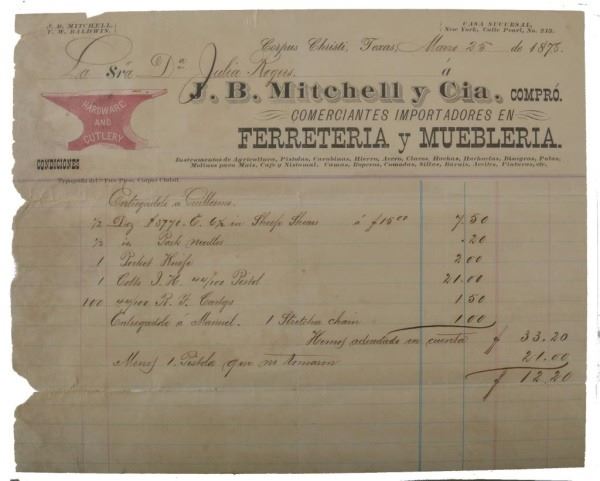 J. B. MITCHELL.
T. W. BALDWIN.
CASA SUCURSAL,
New York, Calle Pearl, No. 212.
Corpus Christi, Texas, Marzo 25 de 1878.
La Sra Da Julia á
J. B. Mitchell y Cia. COMPRÓ.
COMERCIANTES IMPORTADORES EN
FERRETERIA y MUEBLERIA.
HARDWARE
AND
CUTLERY
Instrumentos de Agricultura, Pistolas, Carabinas, Hierro, Acero, Clavos, Hachas, Hachuelas, Bisagras, Palas,
Molinos para Maiz, Cafe y Nixtamal, Camas, Roperos, Comodas, Sillas, Barniz, Aceites, Pinturas, etc.
CONDICIONES
Tipografia del Free Press, Corpus Christi.
Entregadole a Guillermo.
1/2 Doz in Sheep Shears á $15.00 7.50
1/2 Pack needles .20
1 Pocket Knife 2.00
1 Colts 44/100 Pistol 21.00
100 44/100 R. F. Cartgs 1.50
Entregadole á Manuel. 1 Stretcher chain 1.00
Hemos adeudado en cuenta $ 33.20
Menos 1 Pistola que no tomaron 21.00
$ 12.20